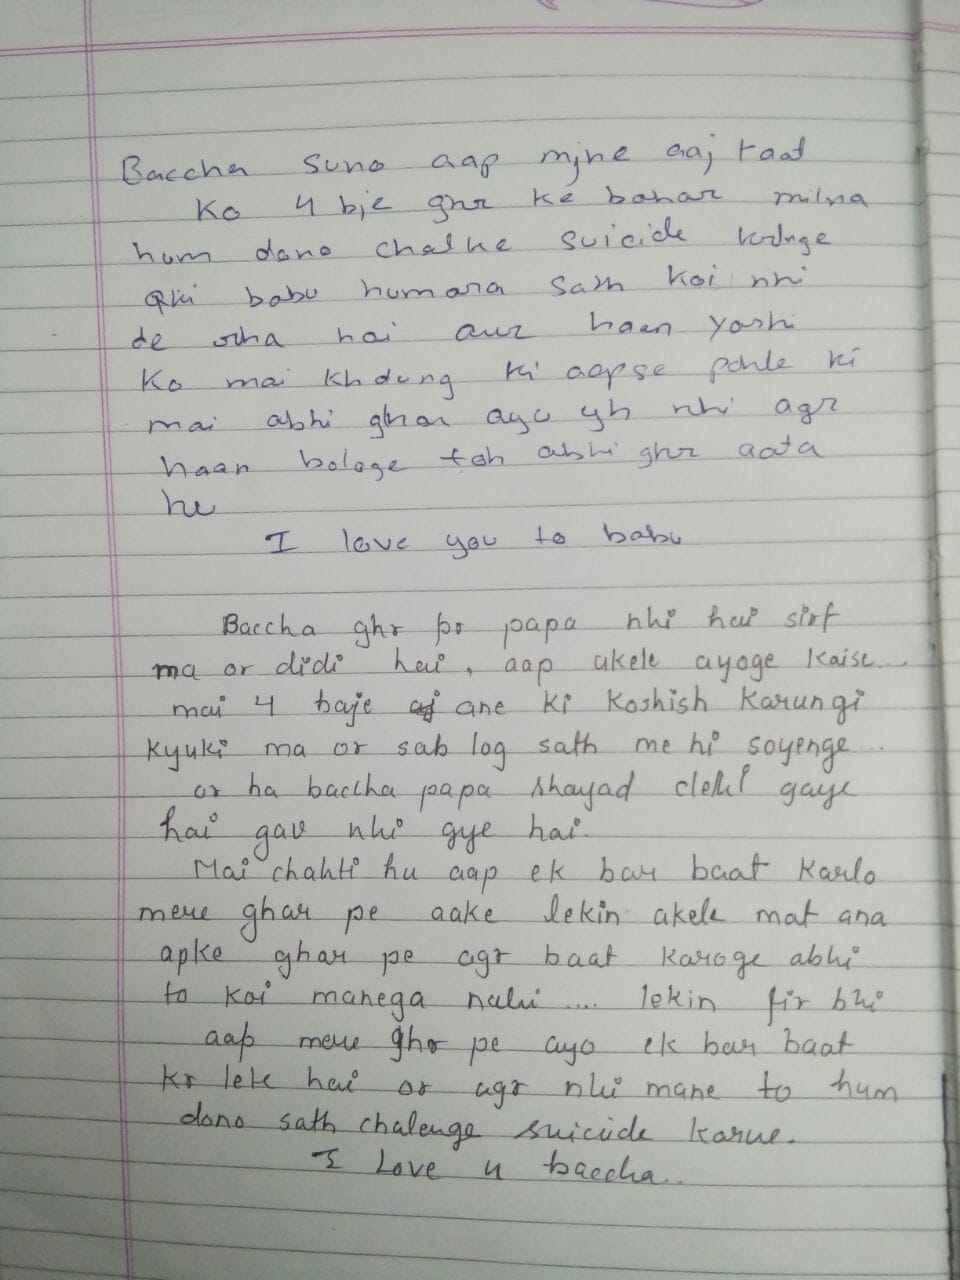 Baccha suno aap mjhe aaj raat
Ko 4 bje ghr ke bahar milna
hum dono chalke suicide krlnge
Qki babu humara sath koi nhi
de rha hai aur haan yash
Ko mai khdung ki aapse pahle ki
mai abhi ghar ayu yh nhi agr
haan bologe toh abhi ghr aata
hu
I love you to babu
Baccha ghr pr papa nhi hai sirf
ma or didi hai, aap akele ayoge kaise...
mai 4 baje ane ki koshish karungi
kyuki ma or sab log sath me hi soyenge...
or ha baccha papa shayad delhi gaye
hai gav nhi gye hai.
Mai chahti hu aap ek bar baat karlo
mere ghar pe aake lekin akele mat ana
apke ghar pe agr baat karoge abhi
to koi manega nahi .... lekin fir bhi
aap mere ghr pe ayo ek bar baat
kr lete hai or agr nhi mane to hum
dono sath chalenge suicide karne.
I Love u baccha..